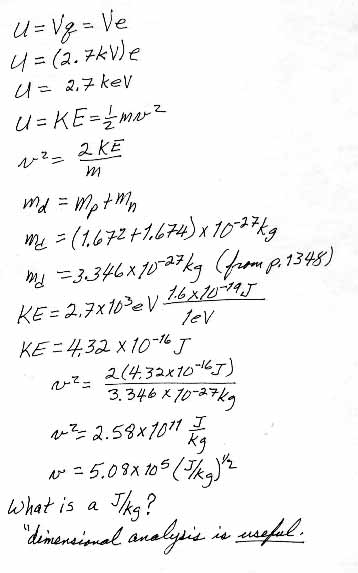 U = Vq = Ve
U = (2.7kV)e
U = 2.7 keV
U = KE = ½mv²
v² = 2 KE / m
m_d = m_p + m_n
m_d = (1.672 + 1.674) x 10⁻²⁷ kg
m_d = 3.346 x 10⁻²⁷ kg (from p. 1348)
KE = 2.7 x 10³ eV 1.6 x 10⁻¹⁹ J / 1eV
KE = 4.32 x 10⁻¹⁶ J
v² = 2(4.32 x 10⁻¹⁶ J) / 3.346 x 10⁻²⁷ kg
v² = 2.58 x 10¹¹ J/kg
v = 5.08 x 10⁵ (J/kg)^½
What is a J/kg?
"dimensional analysis is useful.